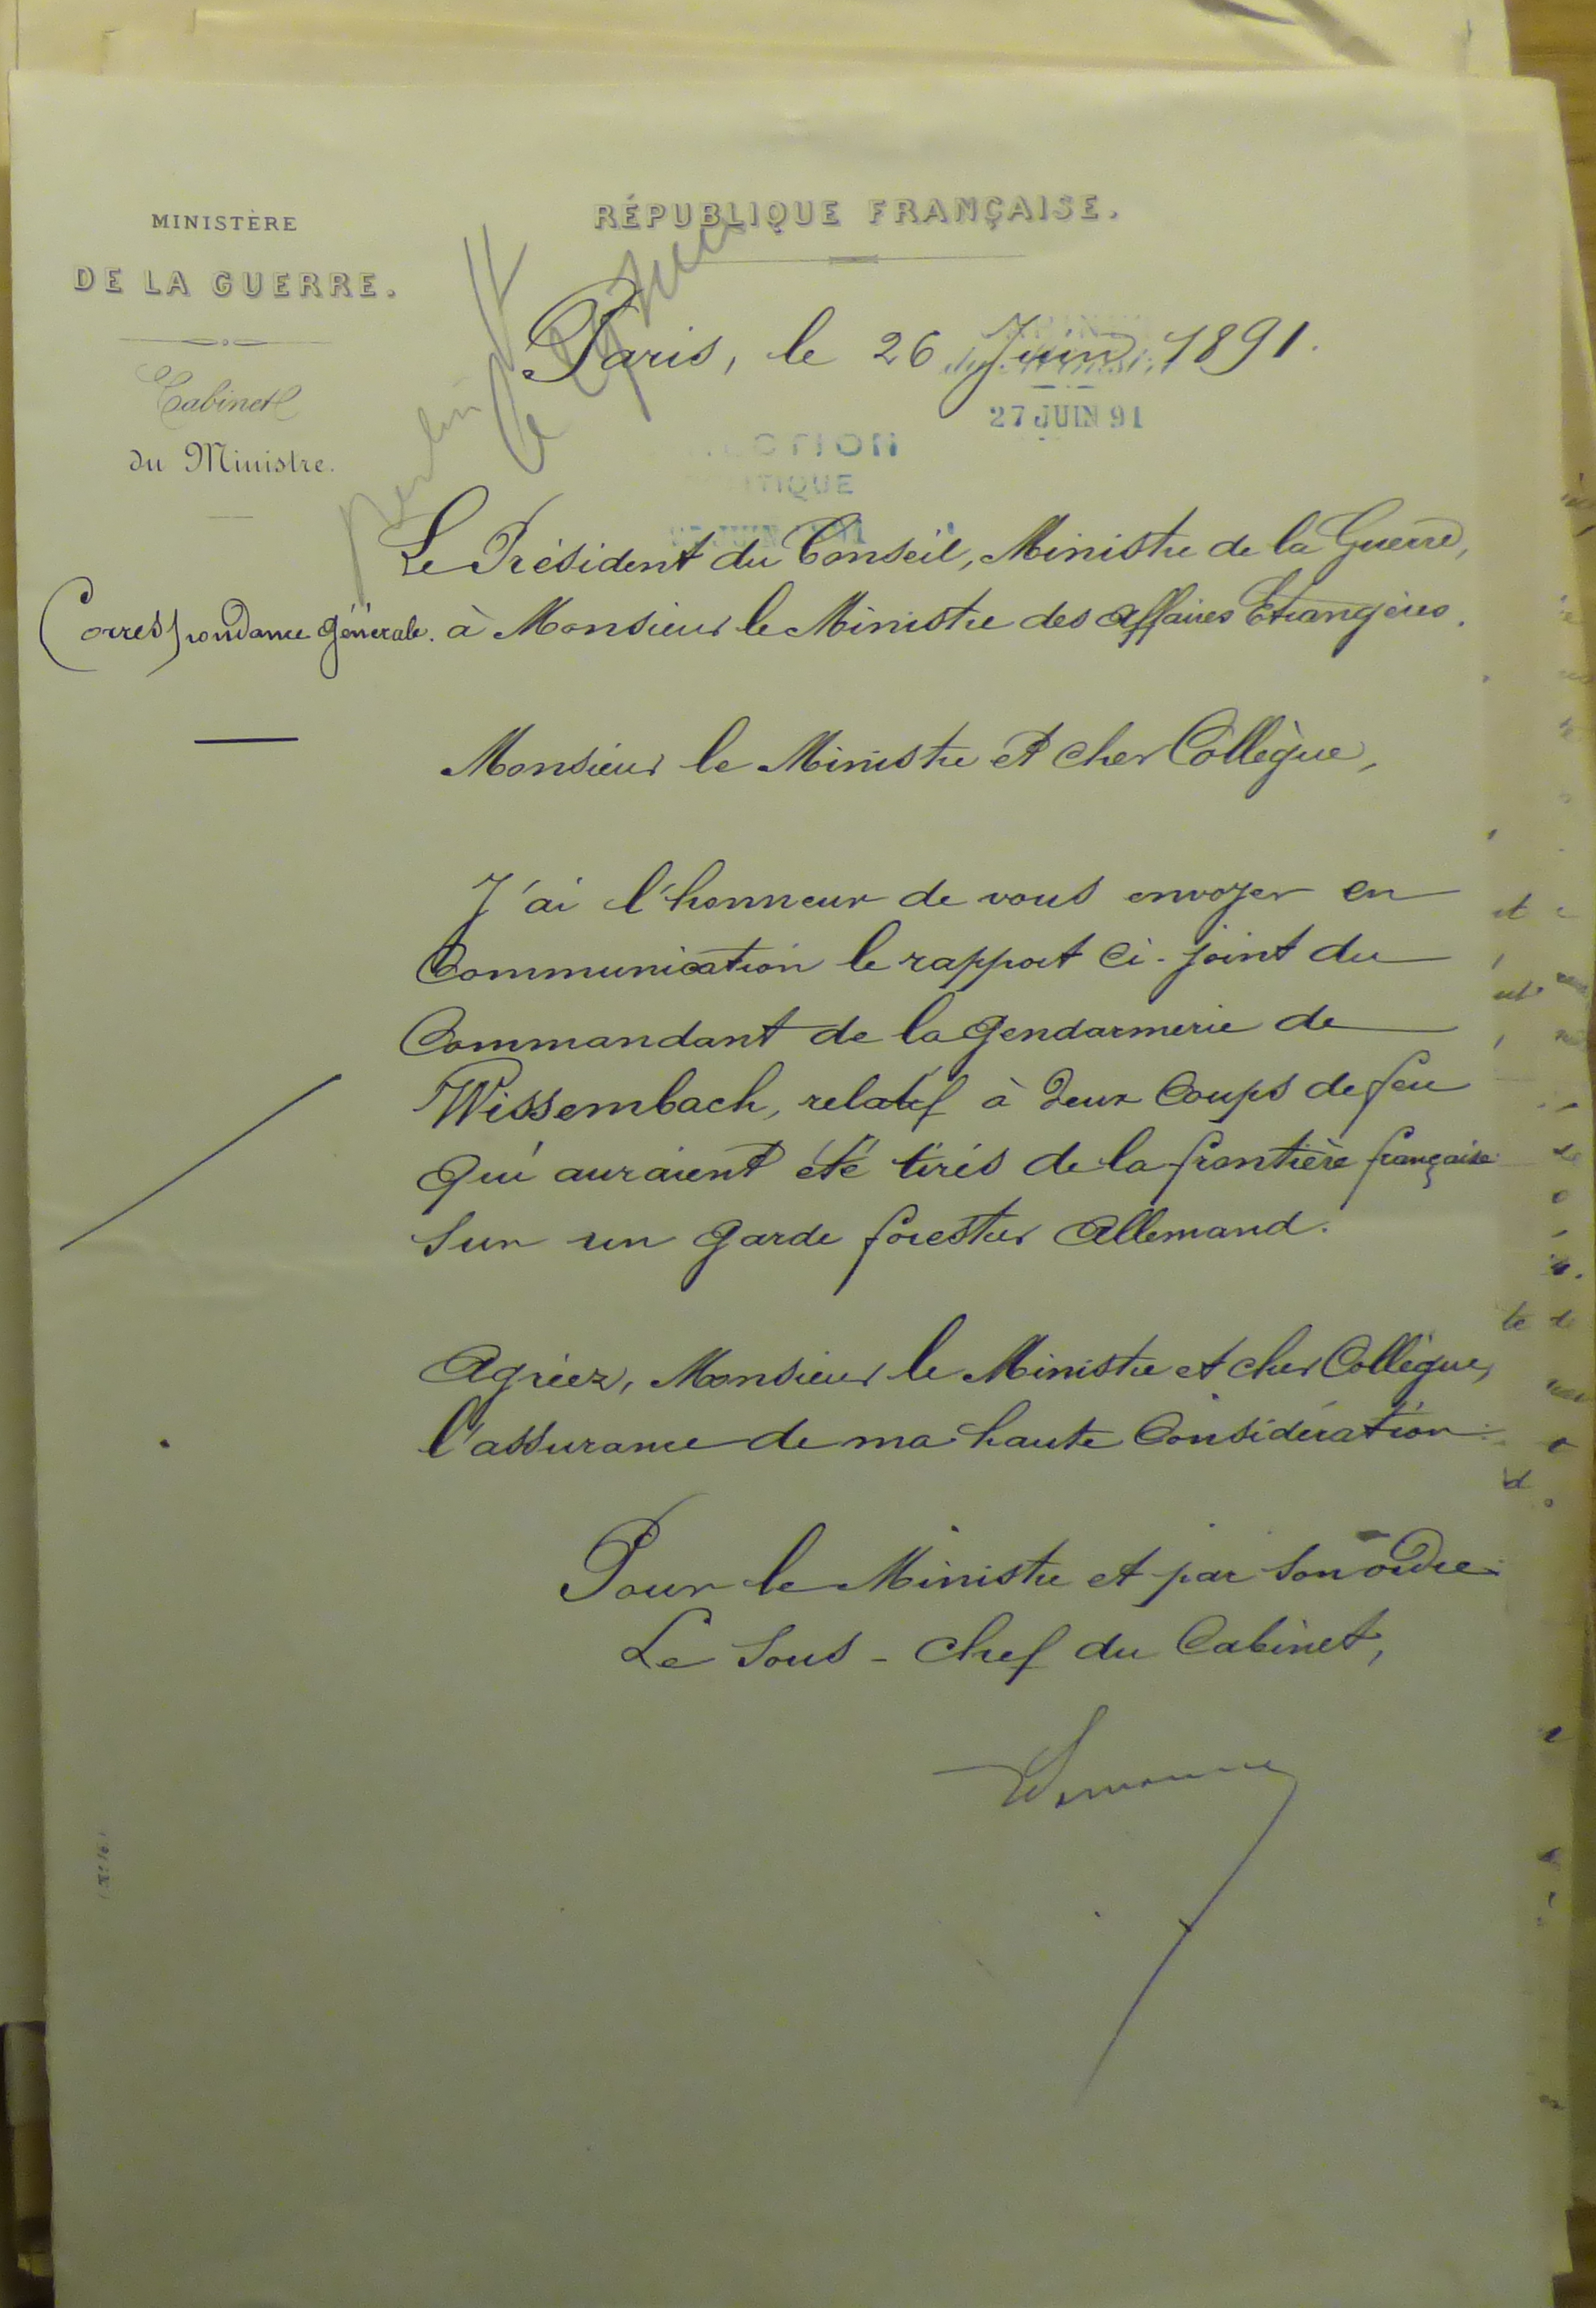 MINISTÈRE
DE LA GUERRE.
Cabinet
du Ministre.
Correspondance générale.
RÉPUBLIQUE FRANÇAISE.
Paris, le 26 Juin 1891.
27 JUIN 91
Le Président du Conseil, Ministre de la Guerre,
à Monsieur le Ministre des Affaires Etrangères.
Monsieur le Ministre et cher Collègue,
J'ai l'honneur de vous envoyer en
Communication le rapport ci-joint du
Commandant de la Gendarmerie de
Wissembach, relatif à deux Coups de feu
qui auraient été tirés de la frontière française
sur un garde forestier Allemand.
Agréez, Monsieur le Ministre et cher Collègue,
l'assurance de ma haute Considération.
Pour le Ministre et par son ordre
Le Sous-Chef du Cabinet,